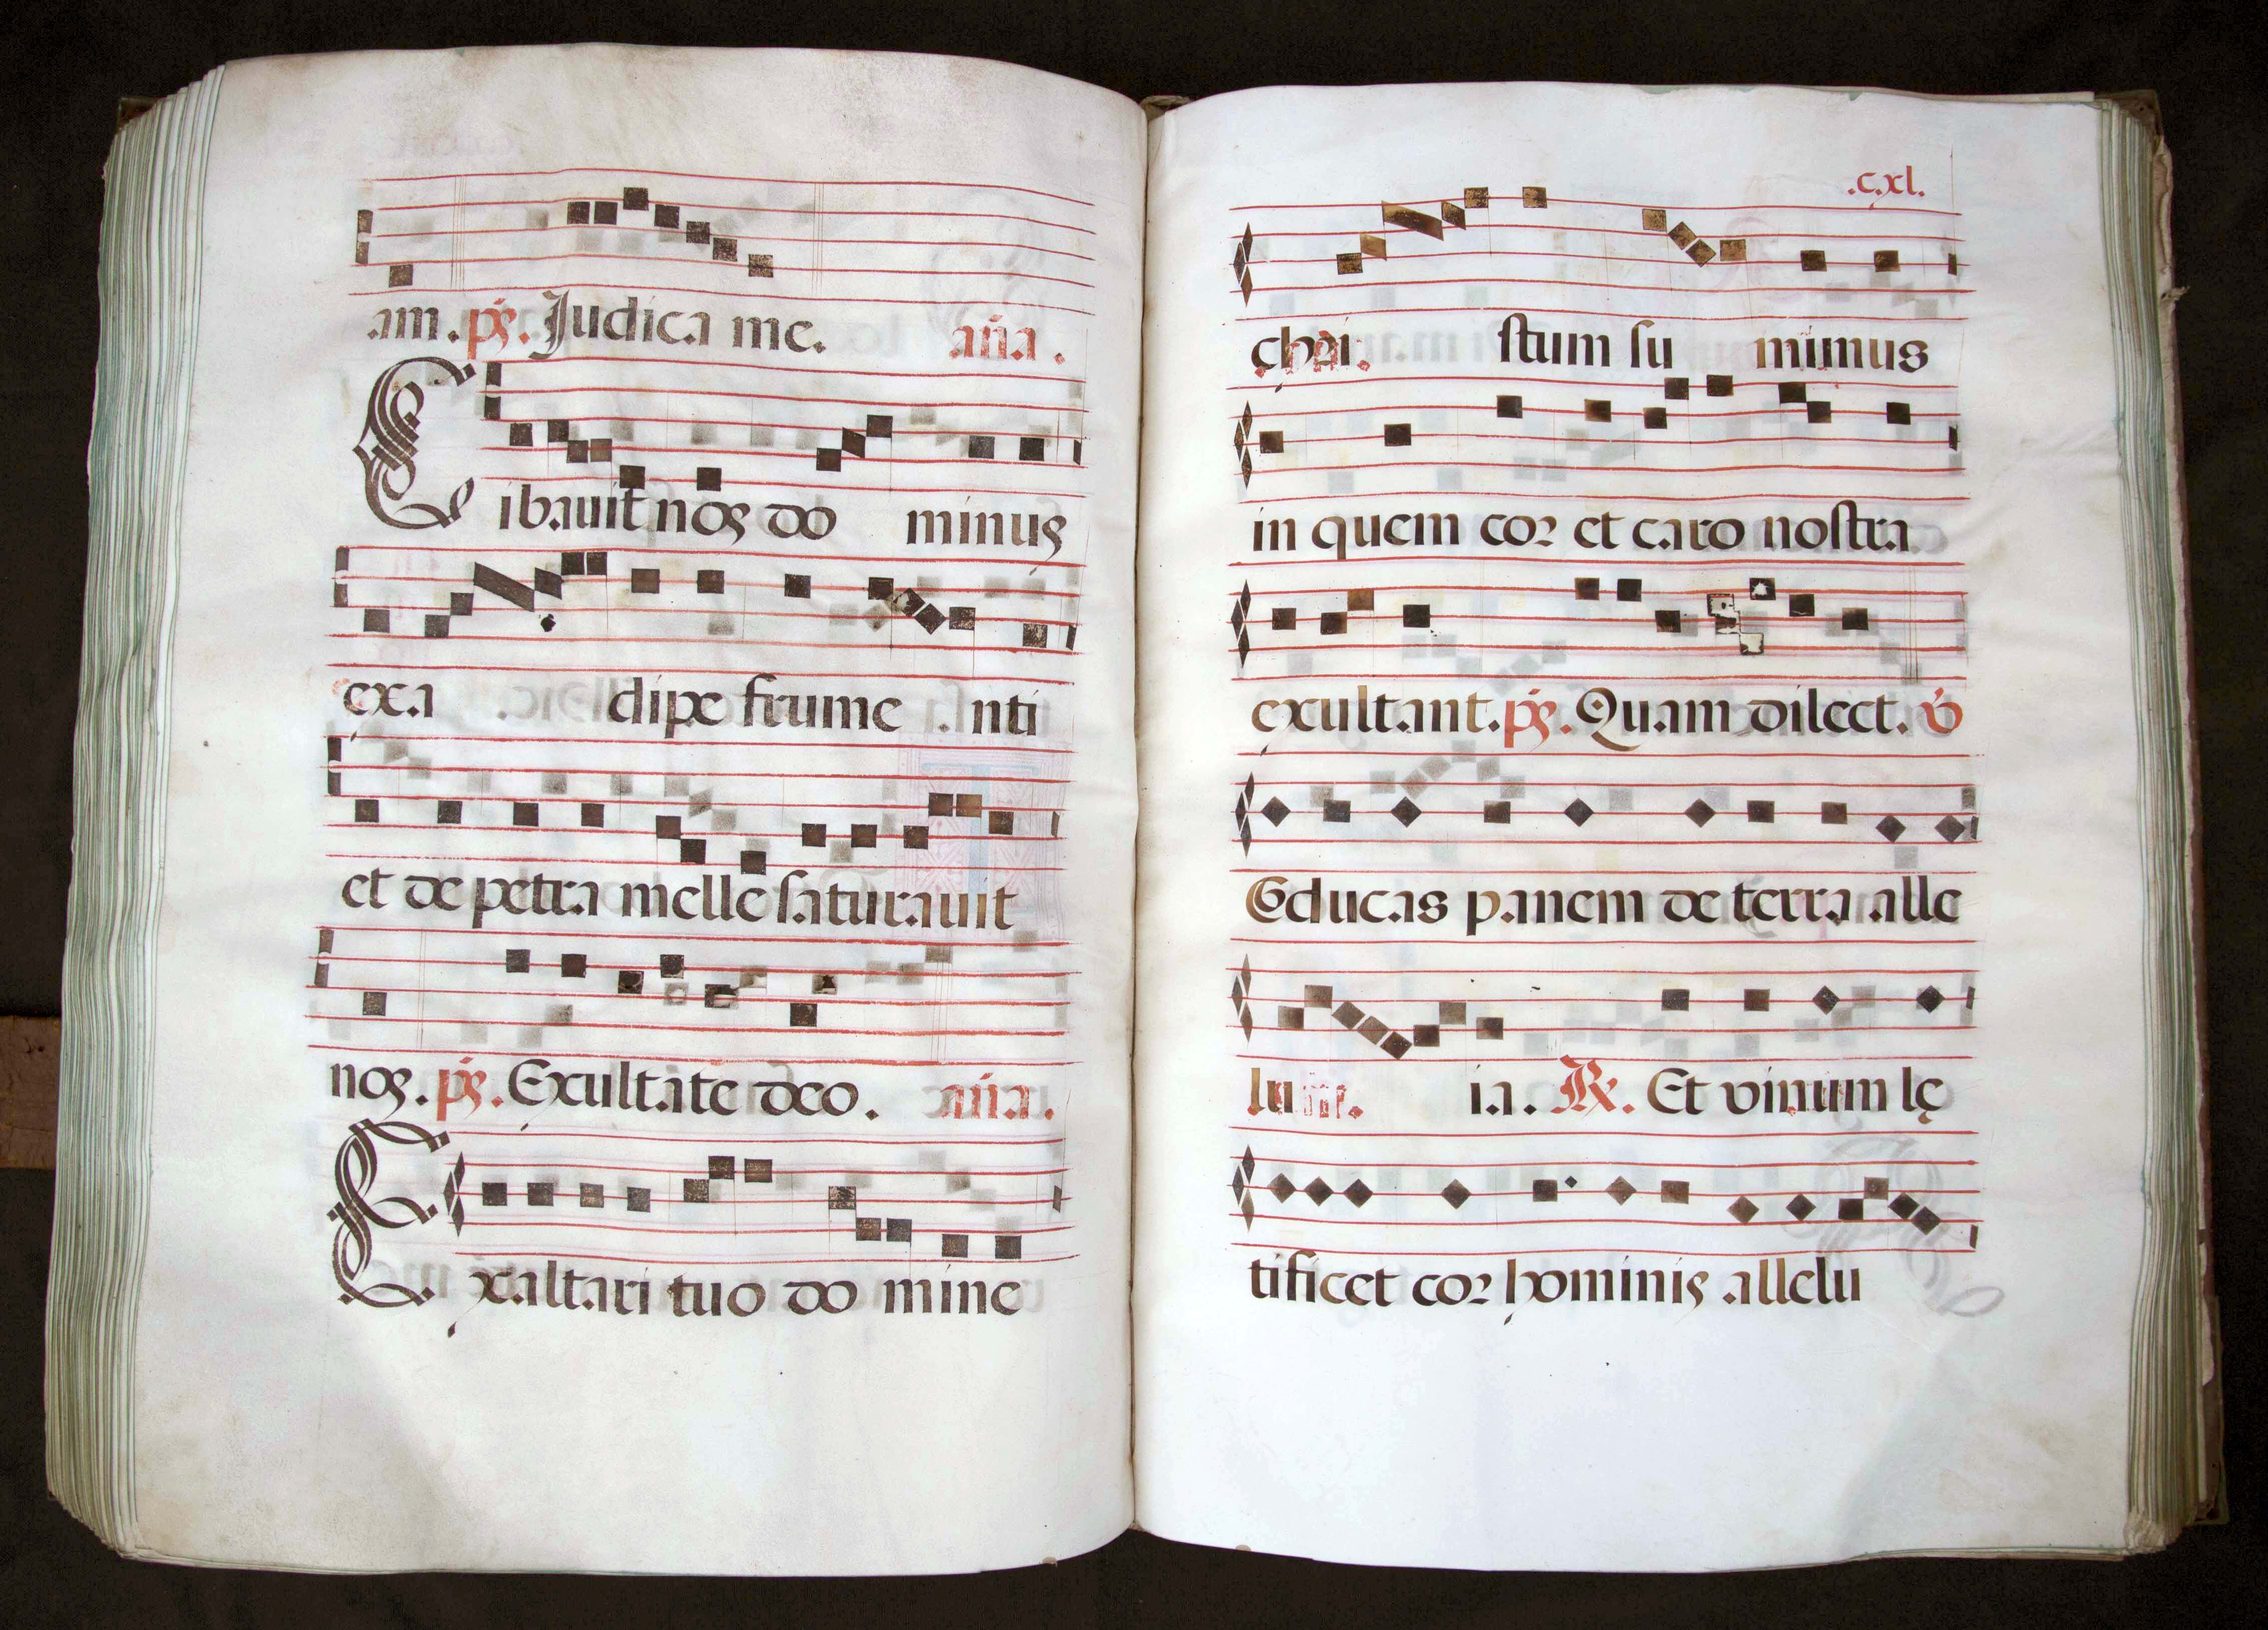 am. ps. Judica me. aña.
Cibauit nos do minus
exa dipe frume nti
et de petra melle saturauit
nos. ps. Exultate deo. aña.
Exaltari tuo do mine
.c.xl.
chri stum su mimus
in quem cor et caro nostra
exultant. ps. Quam dilect. v
Educas panem de terra alle
lu ia. R. Et vinum lę
tificet cor hominis allelu